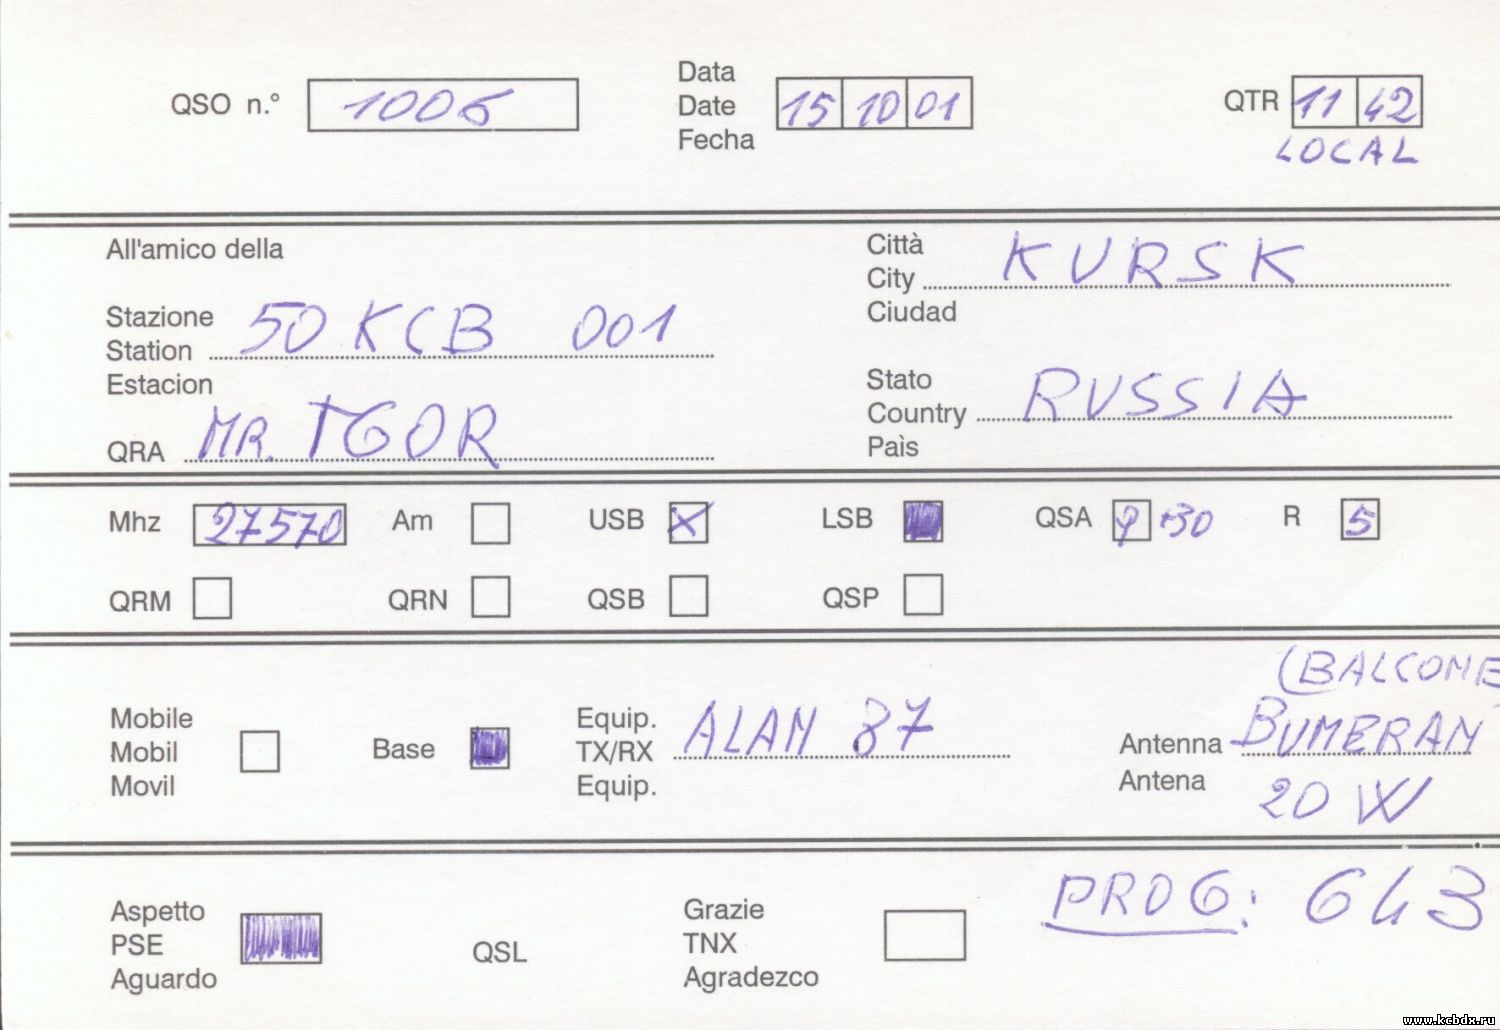 QSO n.° 1006
Data
Date 15 10 01
Fecha
QTR 11 42
LOCAL
All'amico della
Stazione
Station 50 KCB 001
Estacion
QRA MR. IGOR
Città
City KURSK
Ciudad
Stato
Country RUSSIA
Paìs
Mhz 27570 Am USB X LSB QSA 9 +30 R 5
QRM QRN QSB QSP
Mobile
Mobil
Movil
Base
Equip.
TX/RX ALAN 87
Equip.
(BALCONE
Antenna BUMERAN
Antena 20 W
Aspetto
PSE
Aguardo
QSL
Grazie
TNX
Agradezco
PROG: 643
www.kcbdx.ru